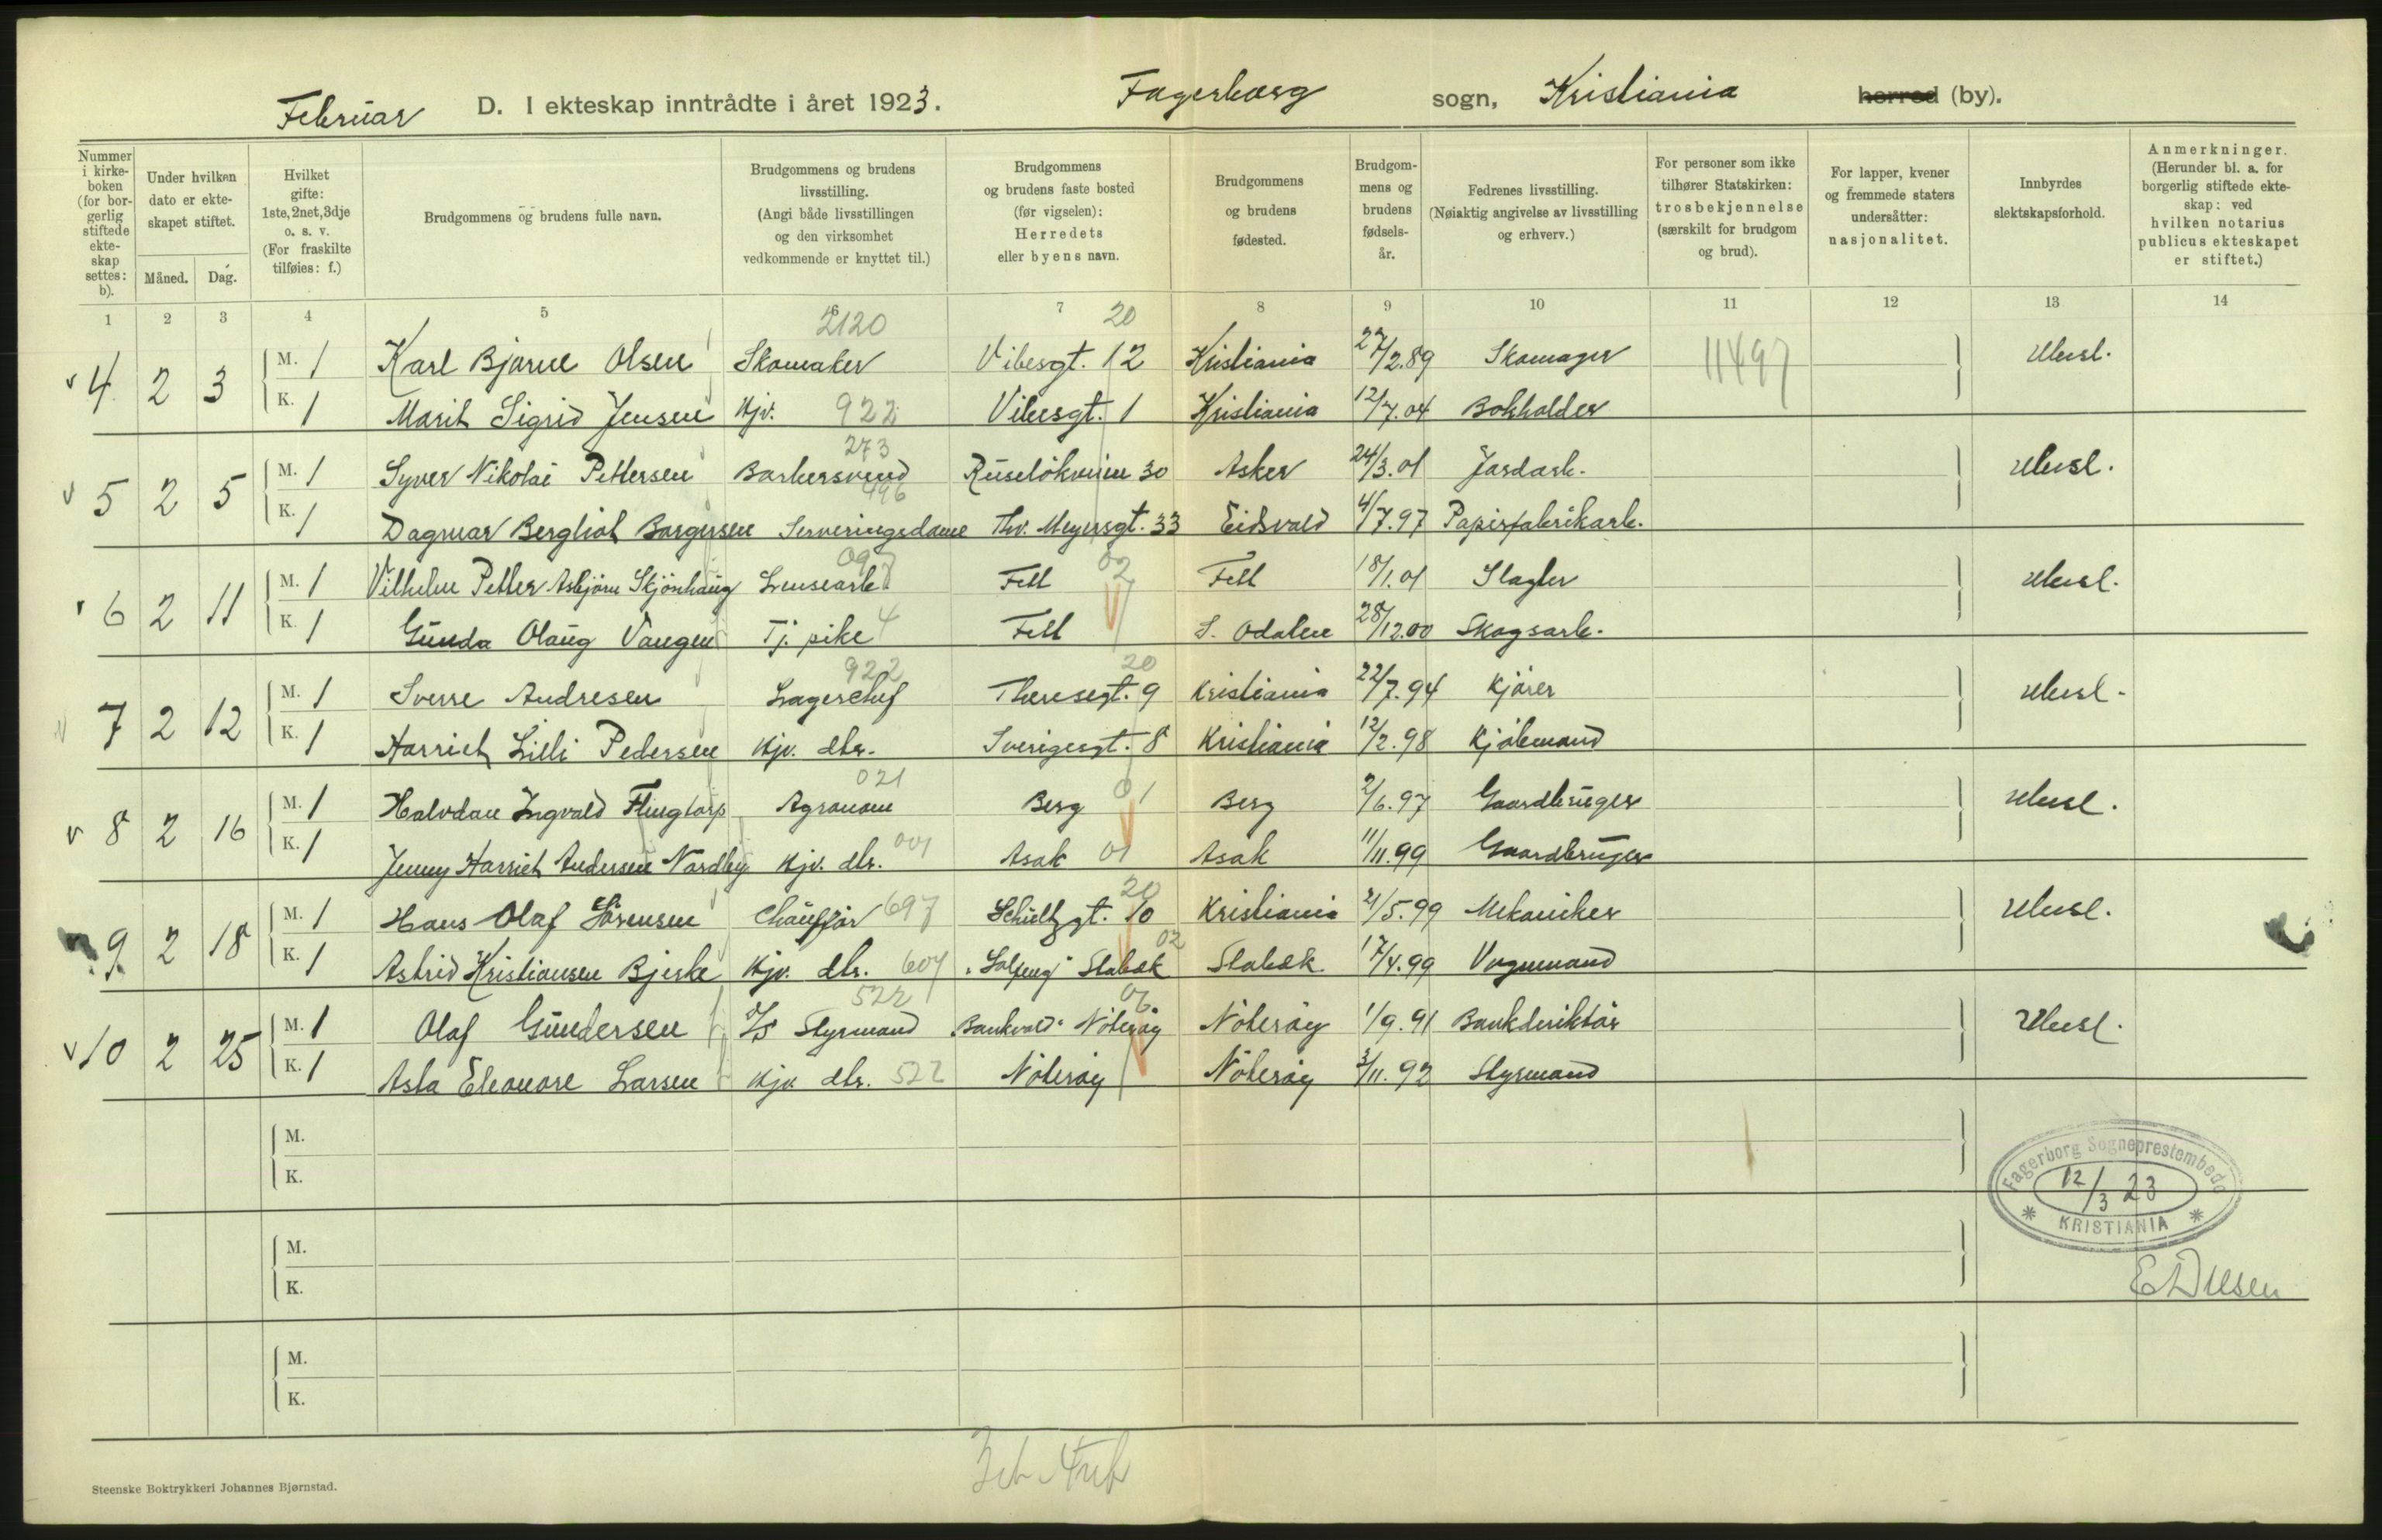 Februar D. I ekteskap inntrådte i året 1923. Fagerborg sogn, Kristiania herred (by).
Nummer i kirkeboken (for borgerlig stiftede ekteskap settes: b).
Under hvilken dato er ekteskapet stiftet.
Måned. Dag.
Hvilket gifte: 1ste, 2net, 3dje o. s. v. (For fraskilte tilføies: f.)
Brudgommens og brudens fulle navn.
Brudgommens og brudens livsstilling. (Angi både livsstillingen og den virksomhet vedkommende er knyttet til.)
Brudgommens og brudens faste bosted (før vigselen): Herredets eller byens navn.
Brudgommens og brudens fødested.
Brudgommens og brudens fødselsår.
Fedrenes livsstilling. (Nøiaktig angivelse av livsstilling og erhverv.)
For personer som ikke tilhører Statskirken: trosbekjennelse (særskilt for brudgom og brud).
For lapper, kvener og fremmede staters undersåtter: nasjonalitet.
Innbyrdes slektskapsforhold.
Anmerkninger. (Herunder bl. a. for borgerlig stiftede ekteskap: ved hvilken notarius publicus ekteskapet er stiftet.)
1 2 3 4 5 6 7 8 9 10 11 12 13 14
2120 20
v 4 2 3 M. 1 Karl Bjarne Olsen Skomaker Vibesgt. 12 Kristiania 27/2.89 Skomager 11497 Ubesl.
K. 1 Marit Sigrid Jensen Hjv. 922 Vibesgt. 1 Kristiania 12/7.04 Bokholder
273
v 5 2 5 M. 1 Syver Nikolai Pettersen Barbersvend Ruseløkveien 30 Asker 24/3.01 Jordarb. Ubesl.
496
K. 1 Dagmar Bergliot Borgersen Serveringsdame Thv. Meyersgt. 33 Eidsvold 4/7.97 Papirfabrikarb.
097 02
v 6 2 11 M. 1 Vilhelm Petter Asbjørn Skjønhaug Lensearb. Fet Fet 18/1.01 Slagter Ubesl.
K. 1 Gunda Olaug Vangen Tj. pike 4 Fet S. Odalen 28/12.00 Skogsarb.
922 20
v 7 2 12 M. 1 Sverre Andresen Lagerchef Theresesgt. 9 Kristiania 22/7.94 Kjører Ubesl.
K. 1 Harriet Lilli Pedersen Hjv. dtr. Sverigesgt. 8 Kristiania 12/2.98 Kjølemand
021
v 8 2 16 M. 1 Halvdan Ingvald Flingtorp Agronom Berg 01 Berg 2/6.97 Gaardbruger Ubesl.
K. 1 Jenny Harriet Andersen Nordby Hjv. dtr. 001 Asak 01 Asak 11/11.99 Gaardbruger
20
9 2 18 M. 1 Hans Olaf Sørensen Chauffør 697 Schultzgt. 10 Kristiania 21/5.99 Mekaniker Ubesl.
02
K. 1 Astrid Kristiansen Bjerke Hjv. dtr. 607 "Solfeng" Stabæk Stabæk 17/4.99 Vognmand
522 06
v 10 2 25 M. 1 Olaf Gundersen Styrmand "Bankvold" Nøterøy Nøterøy 1/9.91 Bankdirektør Ubesl.
K. 1 Asta Eleonore Larsen Hjv dtr. 522 Nøterøy Nøterøy 3/11.92 Styrmand
M.
K.
Fagerborg Sogneprestembede
12/3 23
* KRISTIANIA *
M.
K.
M.
K.
Steenske Boktrykkeri Johannes Bjørnstad.